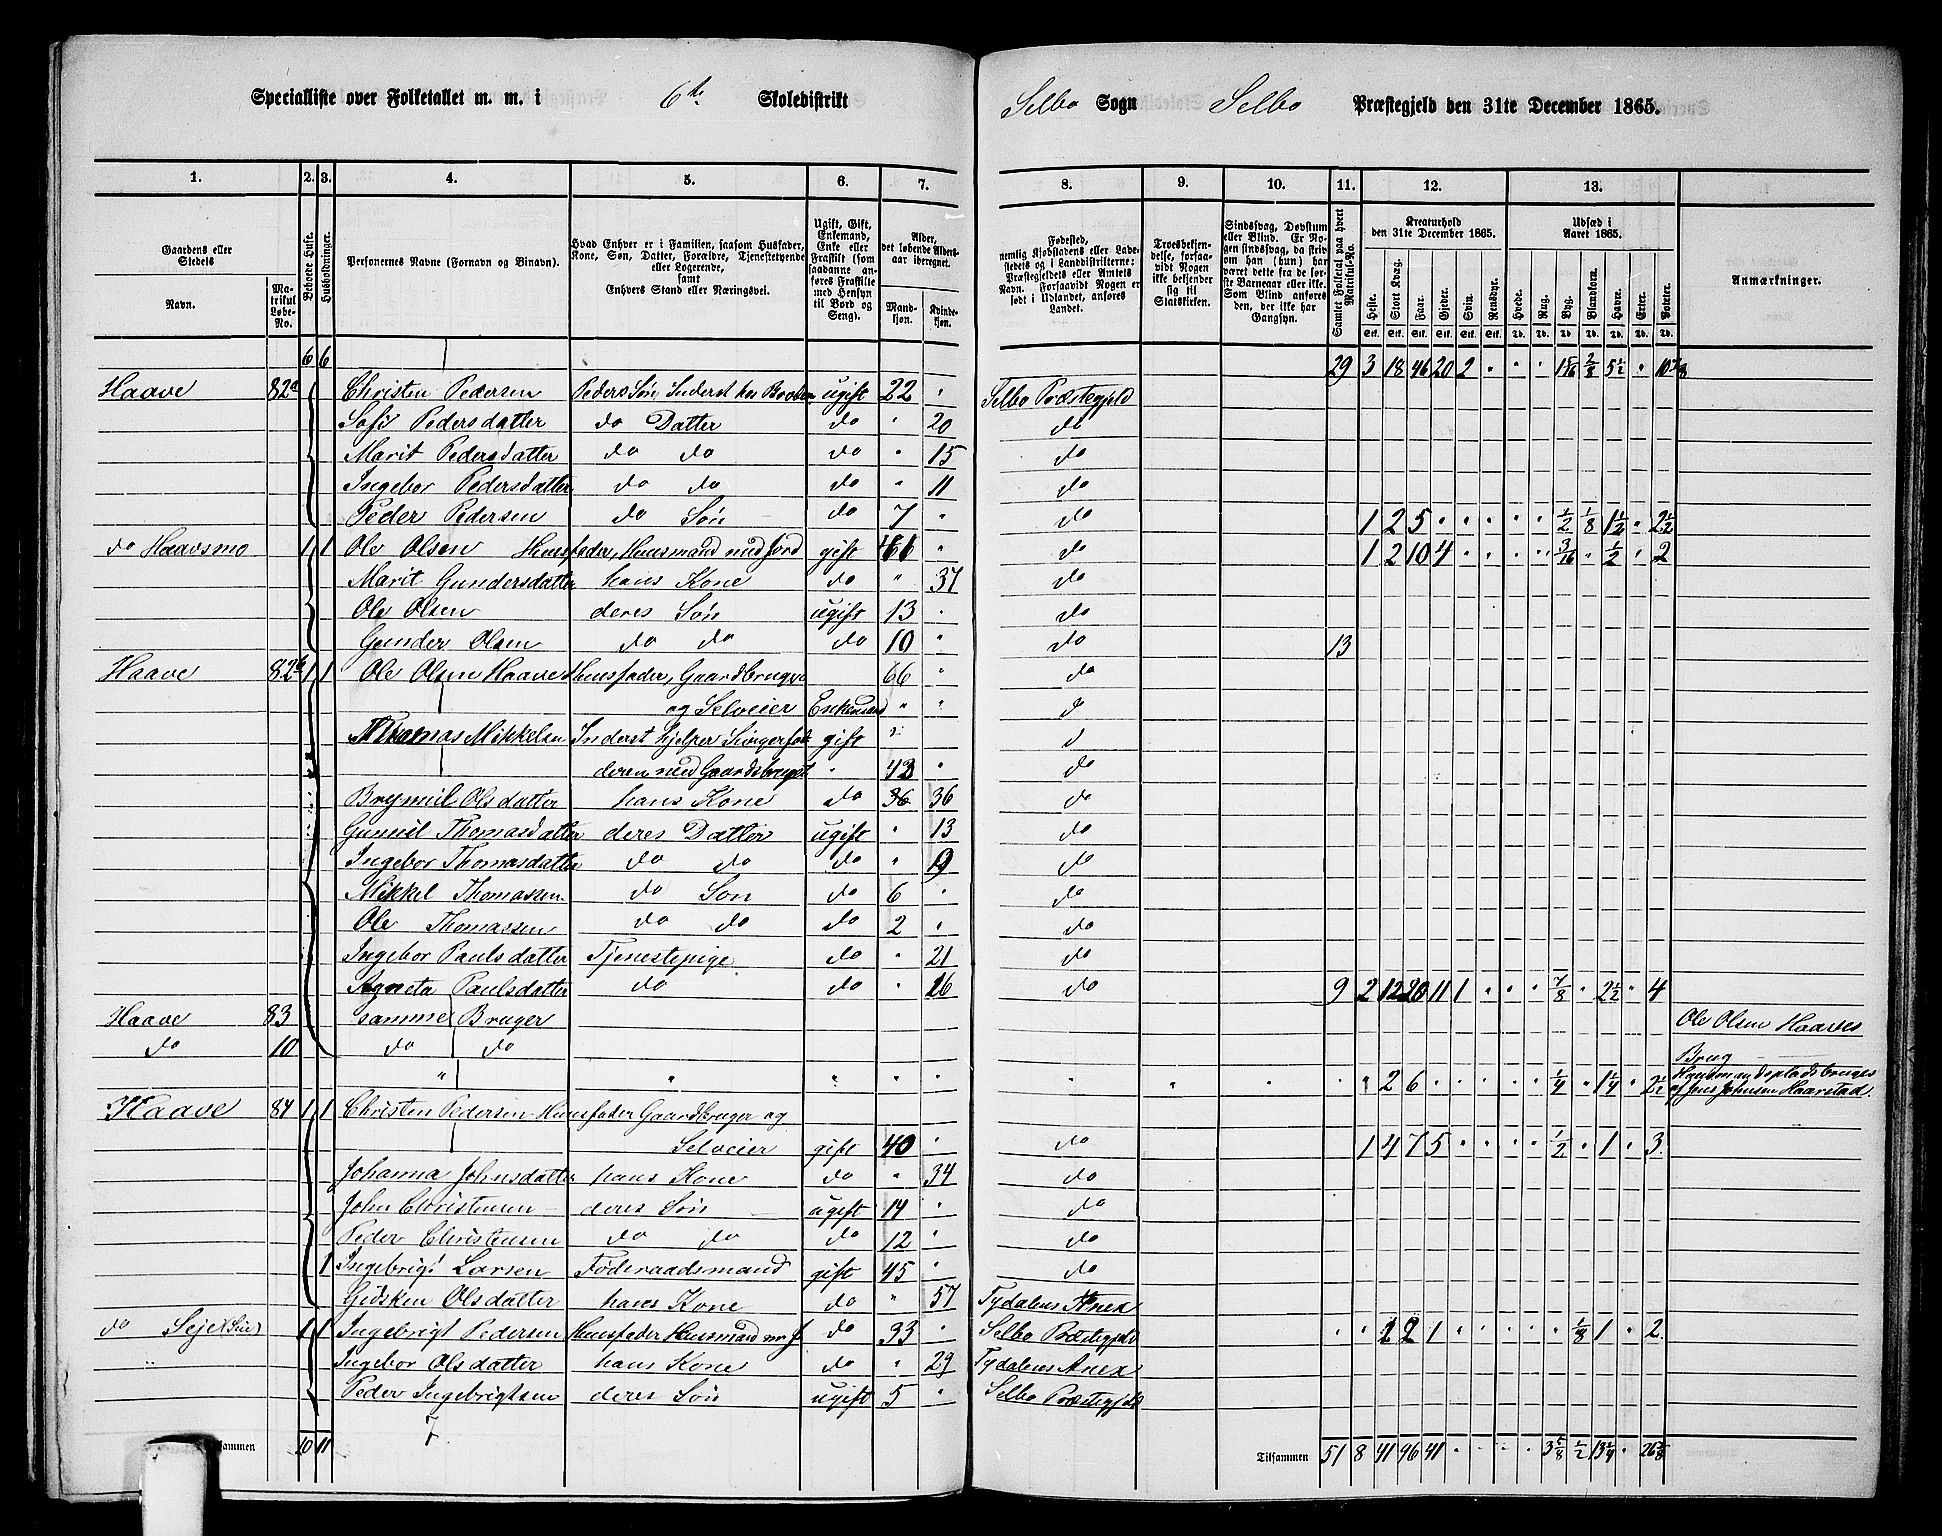 Specialliste over Folketallet m. m. i 6te Skoledistrikt Selbo Sogn Selbo Præstegjeld den 31te December 1865.
1. 2. 3. 4. 5. 6. 7. 8. 9. 10. 11. 12. 13.
Gaardens eller Stedets Navn. Matrikul Løbe-No. Beboede Huse. Husholdninger. Personernes Navne (Fornavn og Binavn). Hvad Enhver er i Familien, saasom Husfader, Kone, Søn, Datter, Forældre, Tjenestetyende eller Logerende, samt Enhvers Stand eller Næringsvei. Ugift, Gift, Enkemand, Enke eller Fraskilt (som saadanne anføres Fraskilte med Hensyn til Bord og Seng). Alder, det løbende Alders-aar iberegnet. Mandkjøn. Kvindekjøn.
Fødested, nemlig Kjøbstadens eller Ladestedets og i Landdistrikterne: Præstegjeldets eller Amtets Navn. Forsaavidt Nogen er født i Udlandet, anføres Landet. Troesbekjendelse, forsaavidt Nogen ikke bekjender sig til Statskirken. Sindssvag, Døvstum eller Blind. Er Nogen sindssvag, da skrives om han (hun) har været dette fra de første Barneaar eller ikke. Som Blind anføres den, der ikke har Gangsyn. Samlet Folketal paa hvert Matrikul-No. Kreaturhold den 31te December 1865. Heste. Stort Kvæg. Faar. Gjeder. Svin. Rensdyr. Udsæd i Aaret 1865. Hvede. Rug. Byg. Blandkorn. Havre. Erter. Poteter. Anmærkninger.
6 6 29 3 18 46 20 2 " " " 1 5/16 2/8 5 1/2 " 10 7/8
Haave 82a 1 1 Christen Pedersen Peders Søn Inderst hos Broder ugift 22 " Selbo Præstegjeld
Sofi Pedersdatter do Datter do " 20 do
Marit Pedersdatter do do do " 15 do
Ingebor Pedersdatter do do do " 11 do
Peder Pedersen do Søn do 7 " do 1 2 5 " " " " " 1/2 1/8 1 1/2 " 2 1/2
do Haavsmo 1 1 Ole Olsen Husfader, Huusmand med Jord gift 61 " do 1 2 10 4 " " " " 3/16 " 1/2 " 2
Marit Gundersdatter hans Kone do " 37 do
Ole Olsen deres Søn ugift 13 " do
Gunder Olsen do do do 10 " do 13
Haave 82b 1 1 Ole Olsen Haaves Huusfader, Gaardbruger 66 " do
og Selveier Enkemand " " d
Thomas Mikkelsen Inderst hjelper gift " d
deren med Gaardsbruget " 43 " do
Brynnil Olsdatter hans Kone do 36 36 do
Gunnil Thomasdatter deres Datter ugift " 13 do
Ingebor Thomasdatter do do do " 9 do
Mikkel Thomassen do Søn do 6 " do
Ole Thomassen do do do 2 " do
Ingebor Paulsdatter Tjenestepige do " 21 do
Agneta Paulsdatter do do " 16 do 9 2 12 20 11 1 " " " 7/8 " 2 1/2 " 4
Haave 83 samme Bruger Ole Olsen Haaves
do 10 do do Brug
" " " " " " " " " 2 6 " " " " " 1/4 " 1 1/4 " 2 1/2 Huusmandspladsbruges af Jens Johnsen Haarstad.
Haave 84 1 1 Christen Pedersen Huusfader Gaardbruger og
Selveier gift 40 " do 1 4 7 5 " " " " 1/2 " 1 " 3
Johanna Johnsdatter hans Kone do " 34 do
John Christensen deres Søn ugift 14 " do
Peder Christensen do do do 12 " do
1 Ingebrigt Larsen Føderaadsmand gift 45 " do
Gidsken Olsdatter hans Kone do " 57 Tydalens Anex
do 1 1 Ingebrigt Pedersen Huusfader Huusmand m J do 33 " Selbo Præstegjeld " " 2 2 1 " " " " " 1/8 1 " 2
" Ingebor Olsdatter hans Kone do " 29 Tydalens Anex
Peder Ingebrigtsen deres Søn ugift 5 " Selbo Præstegjeld
7
Tilsammen 10 11 Tilsammen 51 8 41 96 41 " " " " 3 5/8 1/2 13 1/4 " 26 5/8